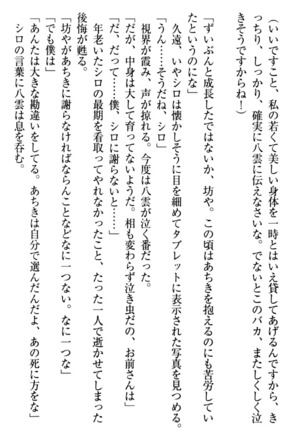 （いいですこと、私の若くて美しい身体を一時とはいえ貸してあげるんですから、き
っちり、しっかり、確実に八雲に伝えなさいな。でないとこのバカ、またしくしく泣
きそうですからね！）
「ずいぶんと成長したではないか、坊や。この頃はあちきを抱えるのにも苦労してい
たというのにな」
　久遠、いやシロは懐かしそうに目を細めてタブレットに表示された写真を見つめる。
「うん……そうだね、シロ」
　視界が霞み、声が掠れる。今度は八雲が泣く番だった。
「だが、中身は大して育ってないようだ。相も変わらず泣き虫だの、お前さんは」
「だ、だって……僕、シロに謝らないと……」
　年老いたシロの最期を看取ってやれなかったこと、たった一人で逝かせてしまった
後悔が甦る。
「坊やがあちきに謝らなければならんことなどなに一つない。なに一つな」
「でも僕は」
「あんたは大きな勘違いをしてる。あちきは自分で選んだんだよ、あの死に方をな」
　シロの言葉に八雲は息を呑む。